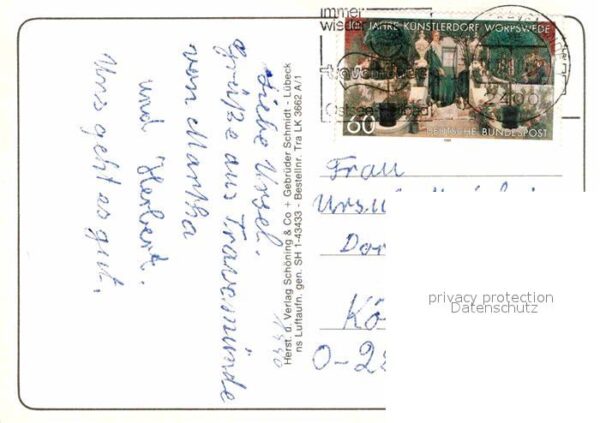 immer
wieder
100 JAHRE KÜNSTLERDORF WORPSWEDE
60
DEUTSCHE BUNDESPOST
Liebe Ursel.
Grüße aus Travemünde
von Martha
und Herbert.
Uns geht es gut.
Herst. d. Verlag Schöning & Co + Gebrüder Schmidt - Lübeck
ns Luftaufn. gen. SH 1-43433 - Bestellnr. Tra LK 3662 A/1
Frau
Ursu
Dor
Kö
O-25
privacy protection
Datenschutz